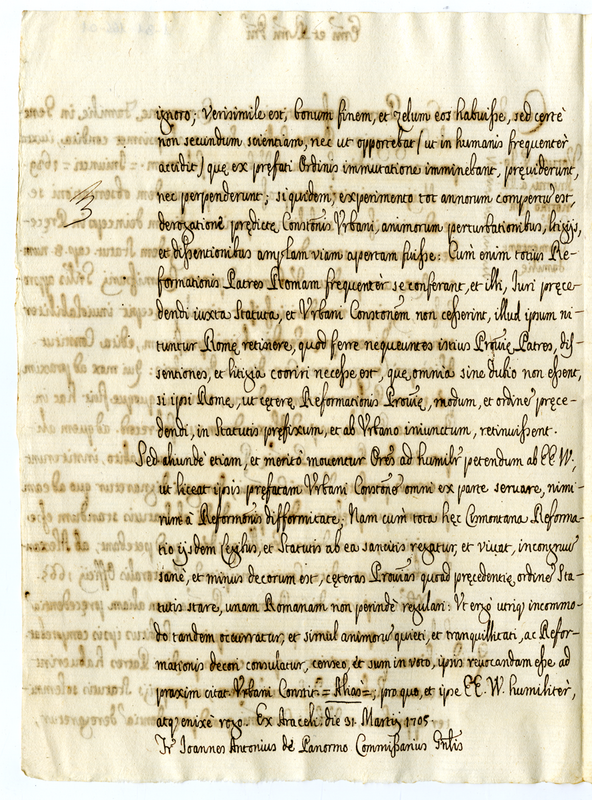 ignoro; Verisimile est, bonum finem, et zelum eos habuisse, sed certè
non secundum scientiam, nec ut oportebat (ut in humanis frequentèr
accidit) quę ex pręfati Ordinis immutatione imminebant, pręviderunt,
nec perpenderunt; siquidem, experimento tot annorum compertũ est,
derogatione prędictę Constõnis Vrbani, animorum perturbationibus, litigijs,
et dissentionibus amplam viam apertam fuisse: Cùm enim totius Re-
formationis Patres Romam frequentèr se conferant, et illi, Iuri pręce-
dendi iuxta Statuta, et Vrbani Constõnem non cesserint, illud ipsum ni-
tuntur Romę retinere, quod ferre nequeuntes istius Provię Patres, dis-
sentiones, et litigia cooriri necesse est, quę omnia sine dubio non essent,
si ipsi Romę, ut cęterę Reformationis Provię, modum, et ordinẽ pręce-
dendi, in Statutis pręfixum, et ab Vrbano iniunctum, retinuissent.
Sed aliunde etiam, et meritò mouentur Ores ad humilr petendum ab EE.VV.,
ut liceat ipsis pręfatam Vrbani Constõnẽ omni ex parte seruare, nimi-
rùm à Reformõnis difformitate; Nam cùm tota hęc Cismontana Reforma-
tio ijsdem Legibus, et Statutis ab ea sancitis regatur, et viuat, incongruũ
sanè, et minus decorum est, cęteras Provias quoad pręcedentię ordinẽ Sta-
tutis stare, unam Romanam non perindè regulari: Vt ergò utriq incommo-
do tandem occurratur, et simul animorũ quieti, et tranquillitati, ac Refor-
mationis decori consulatur, censeo, et sum in voto, ipsis reuocandam esse ad
praxim citat. Vrbani Constit: = Alias =; pro quo, et ipse EE.VV. humilitèr,
atq enixè rogo. Ex Aracęli die 31. Martij 1705.
Fr Ioannes Antonius de Panormo Commissarius Gnlis